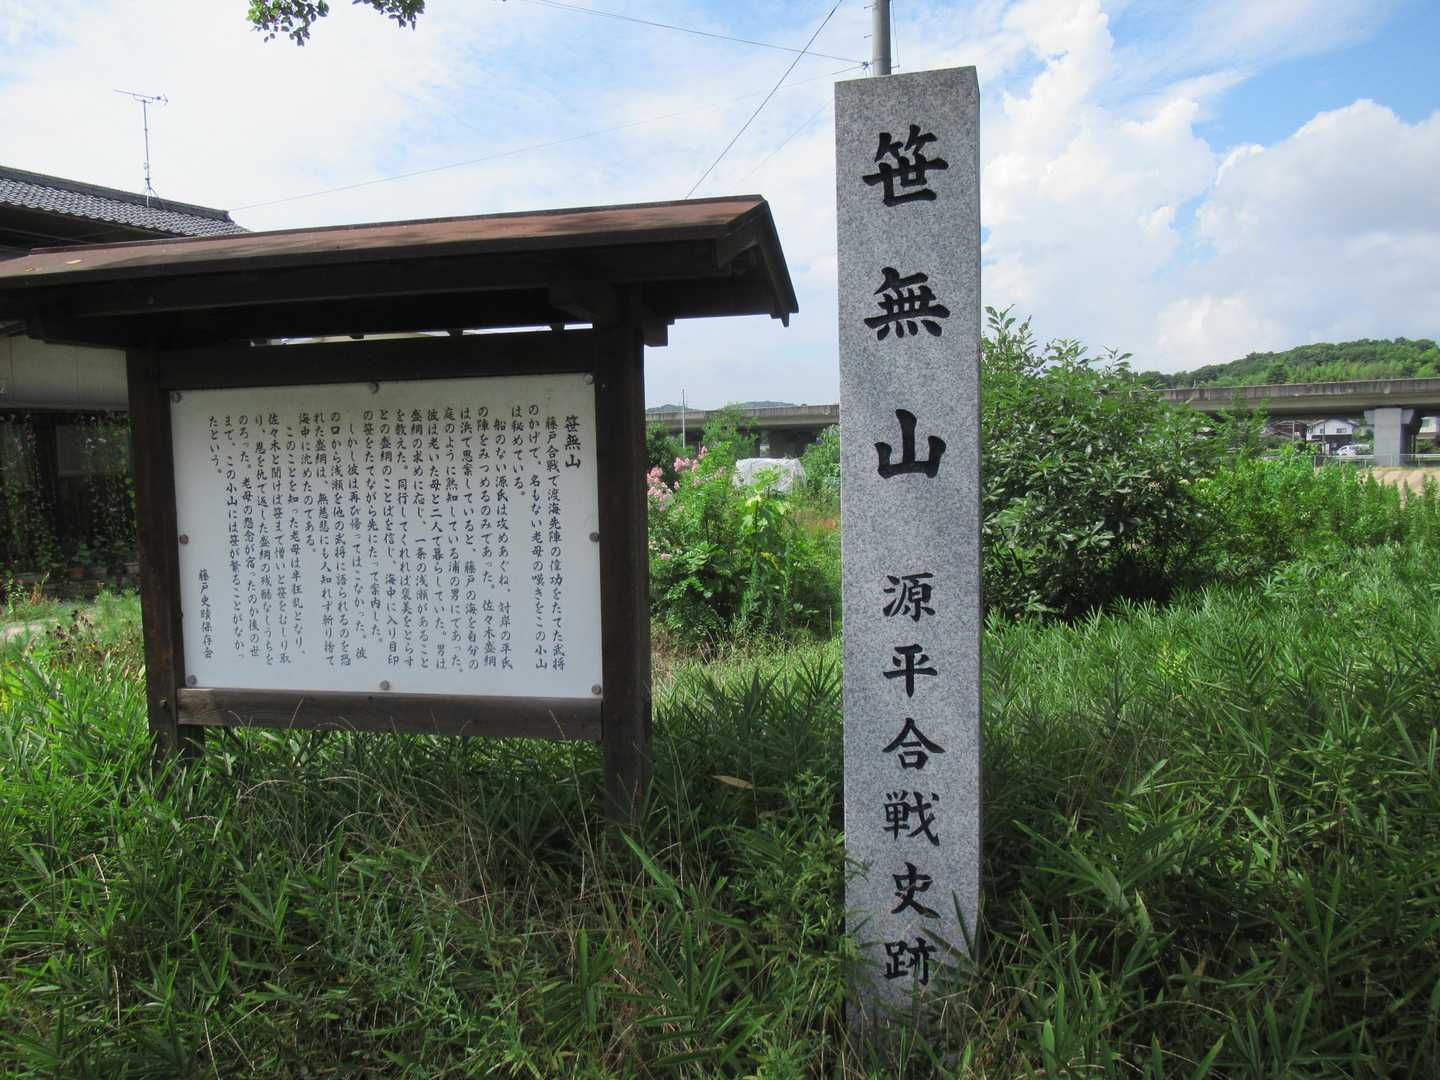 笹無山
藤戸合戦で渡海先陣の偉功をたてた武将
のかげで、名もない老母の嘆きをこの小山
は秘めている。
船のない源氏は攻めあぐね、対岸の平氏
の陣をみつめるのみであった。佐々木盛綱
は浜で思案していると、藤戸の海を自分の
庭のように熟知している浦の男にであった。
彼は老いた母と二人で暮らしていた。男は
盛綱の求めに応じ、一条の浅瀬があること
を教えた。同行してくれれば褒美をとらす
との盛綱のことばを信じ、海中に入り目印
の笹をたてながら先にたって案内した。
しかし彼は再び帰ってはこなかった。彼
の口から浅瀬を他の武将に語られるのを恐
れた盛綱は、無慈悲にも人知れず斬り捨て
海中に沈めたのである。
このことを知った老母は半狂乱となり、
佐々木と聞けば笹まで憎いと笹をむしり取
り、恩を仇で返した盛綱の残酷なしうちを
のろった。老母の怨念が宿ったのか後の世
まで、この小山には笹が繁ることがなかっ
たという。
藤戸史蹟保存会
笹無山 源平合戦史跡